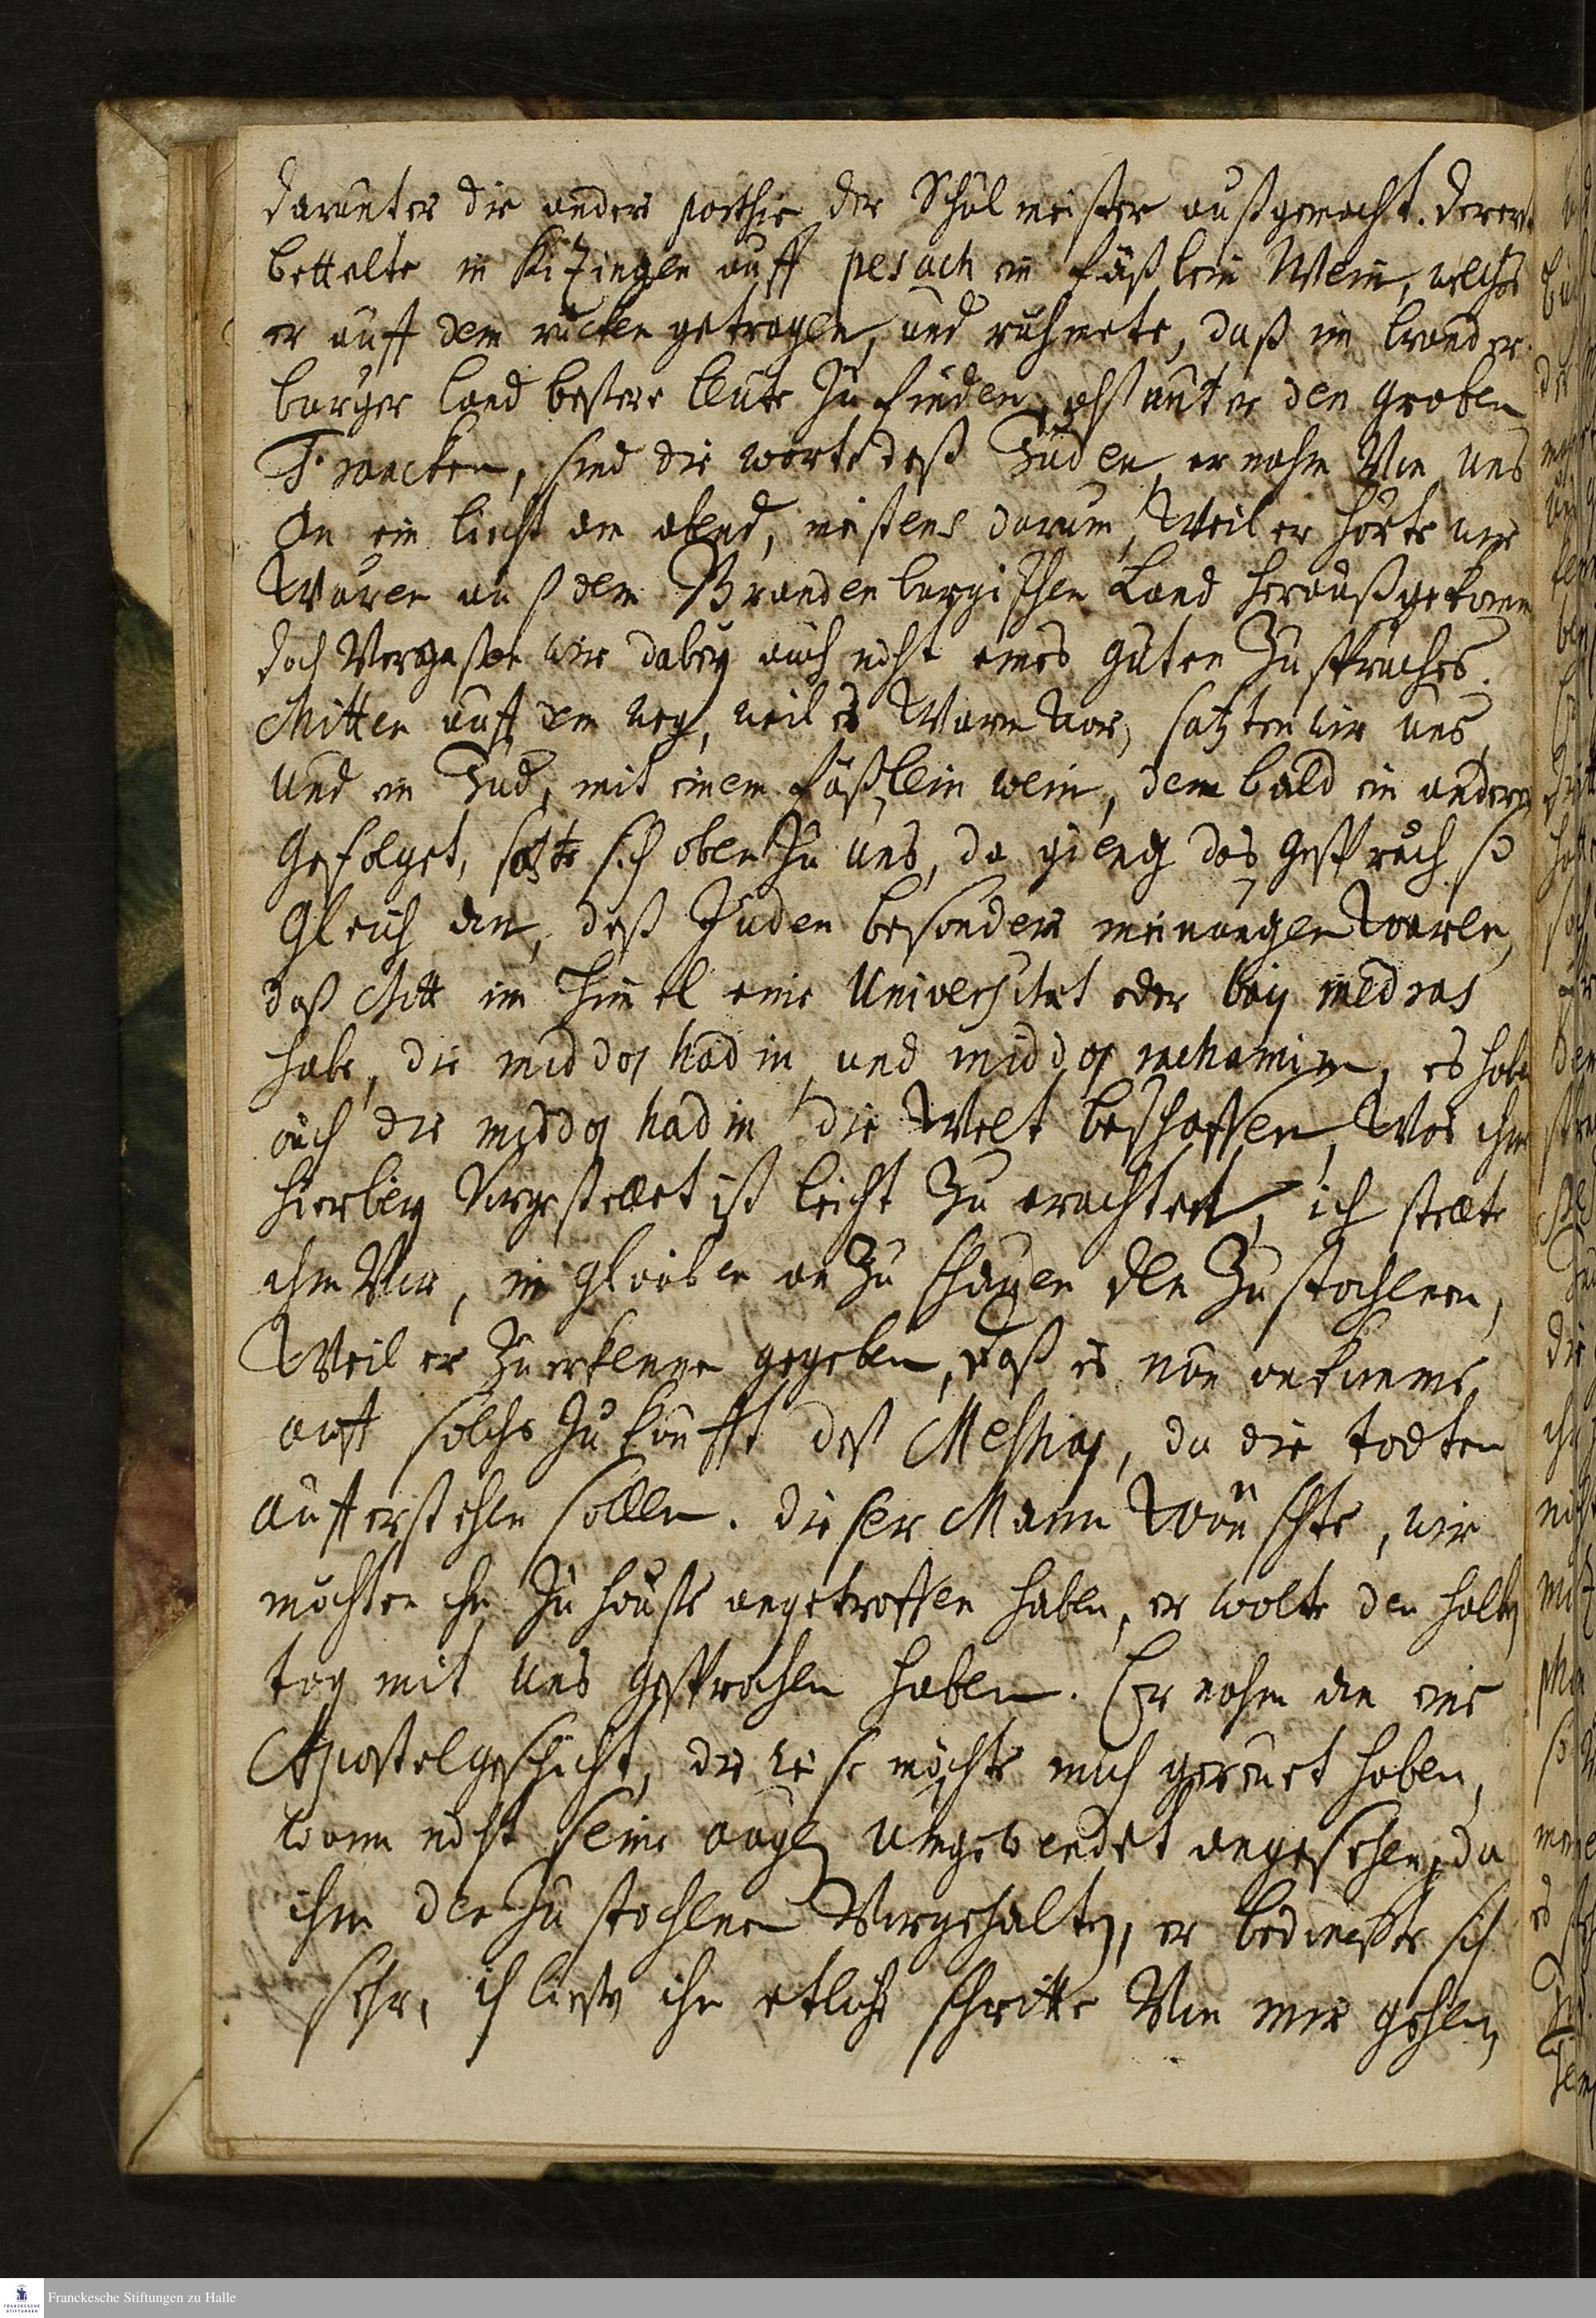 darunter die andere parthie der Schulmeister außgemacht. derer
bettelte in Kizingen auff pesach ein fäßlein Wein, welches
er auff dem rücken getragen, und rühmete, daß im brander
burger land bessere leute zu finden, als unter den groben
Francken, sind die worte deß Juden, er nahm von uns
an ein liecht am abend, meistens darum, Weil er hörte wir
Wären auß dem Brandenburgischen Land heraußgekomen
doch Vergassen wir dabey auch nicht eines guten Zuspruches.
Mitten auff dem weg, weil es Warm war, satzten wir uns,
und ein Jud, mit einem fäßlein wein, dem bald ein anderer
gefolget, satzte sich oben zu uns, da gieng das gespräch so
gleich an, deß Juden besondere meinungen Waren,
daß Gott im Himel eine Universität oder bay medras
habe, die middos hadin, und middos rachamim, es habe
auch die middos hadin die Welt beschaffen, Was ihm
hierbey Vorgestellet ist leicht zu erachten, ich stellte
ihm Vor, im glauben anzuschauen den Zustochenen,
Weil er zuerkennen gegeben, daß es nun ankomme
auff solche Zukunfft deß Messias, da die todten
aufferstehen sollen. dieser Mann Wünschte, wir
möchten ihn zu hause angetroffen haben, er wolte den halben
tag mit uns gesprochen haben. Er nahm an eine
Apostelgeschicht, die mich gereuet haben,
wann nicht seine augen umgewendet angesehen, da
ihm den Zustochenen Vorgehalten, er bedanckte sich
sehr, ich liesse ihn etliche schritte Von mir gehen,
Franckesche Stiftungen zu Halle